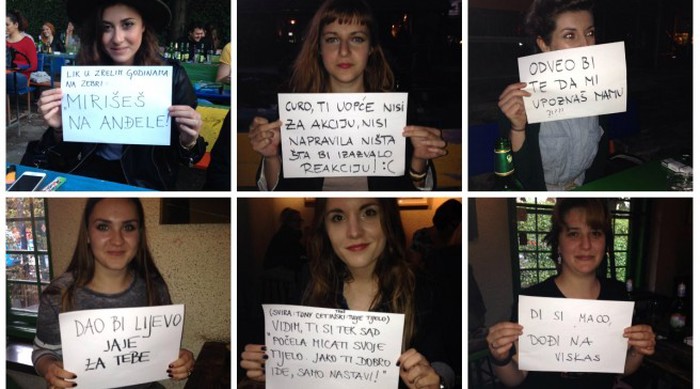 LIK U ZRELIM GODINAMA
NA ZEBRI:
"MIRIŠEŠ
NA ANĐELE!
CURO, TI UOPĆE NISI
ZA AKCIJU, NISI
NAPRAVILA NIŠTA
ŠTA BI IZAZVALO
REAKCIJU! :(
ODVEO BI
TE DA MI
UPOZNAŠ MAMU
DAO BI LIJEVO
JAJE
ZA TEBE
(SVIRA: TONY CETINSKI - TVOJE TIJELO)
"VIDIM, TI SI TEK SAD
POČELA MICATI SVOJE
TIJELO. JAKO TI DOBRO
IDE, SAMO NASTAVI!"
DI SI MACO,
DOĐI NA
VISKAS